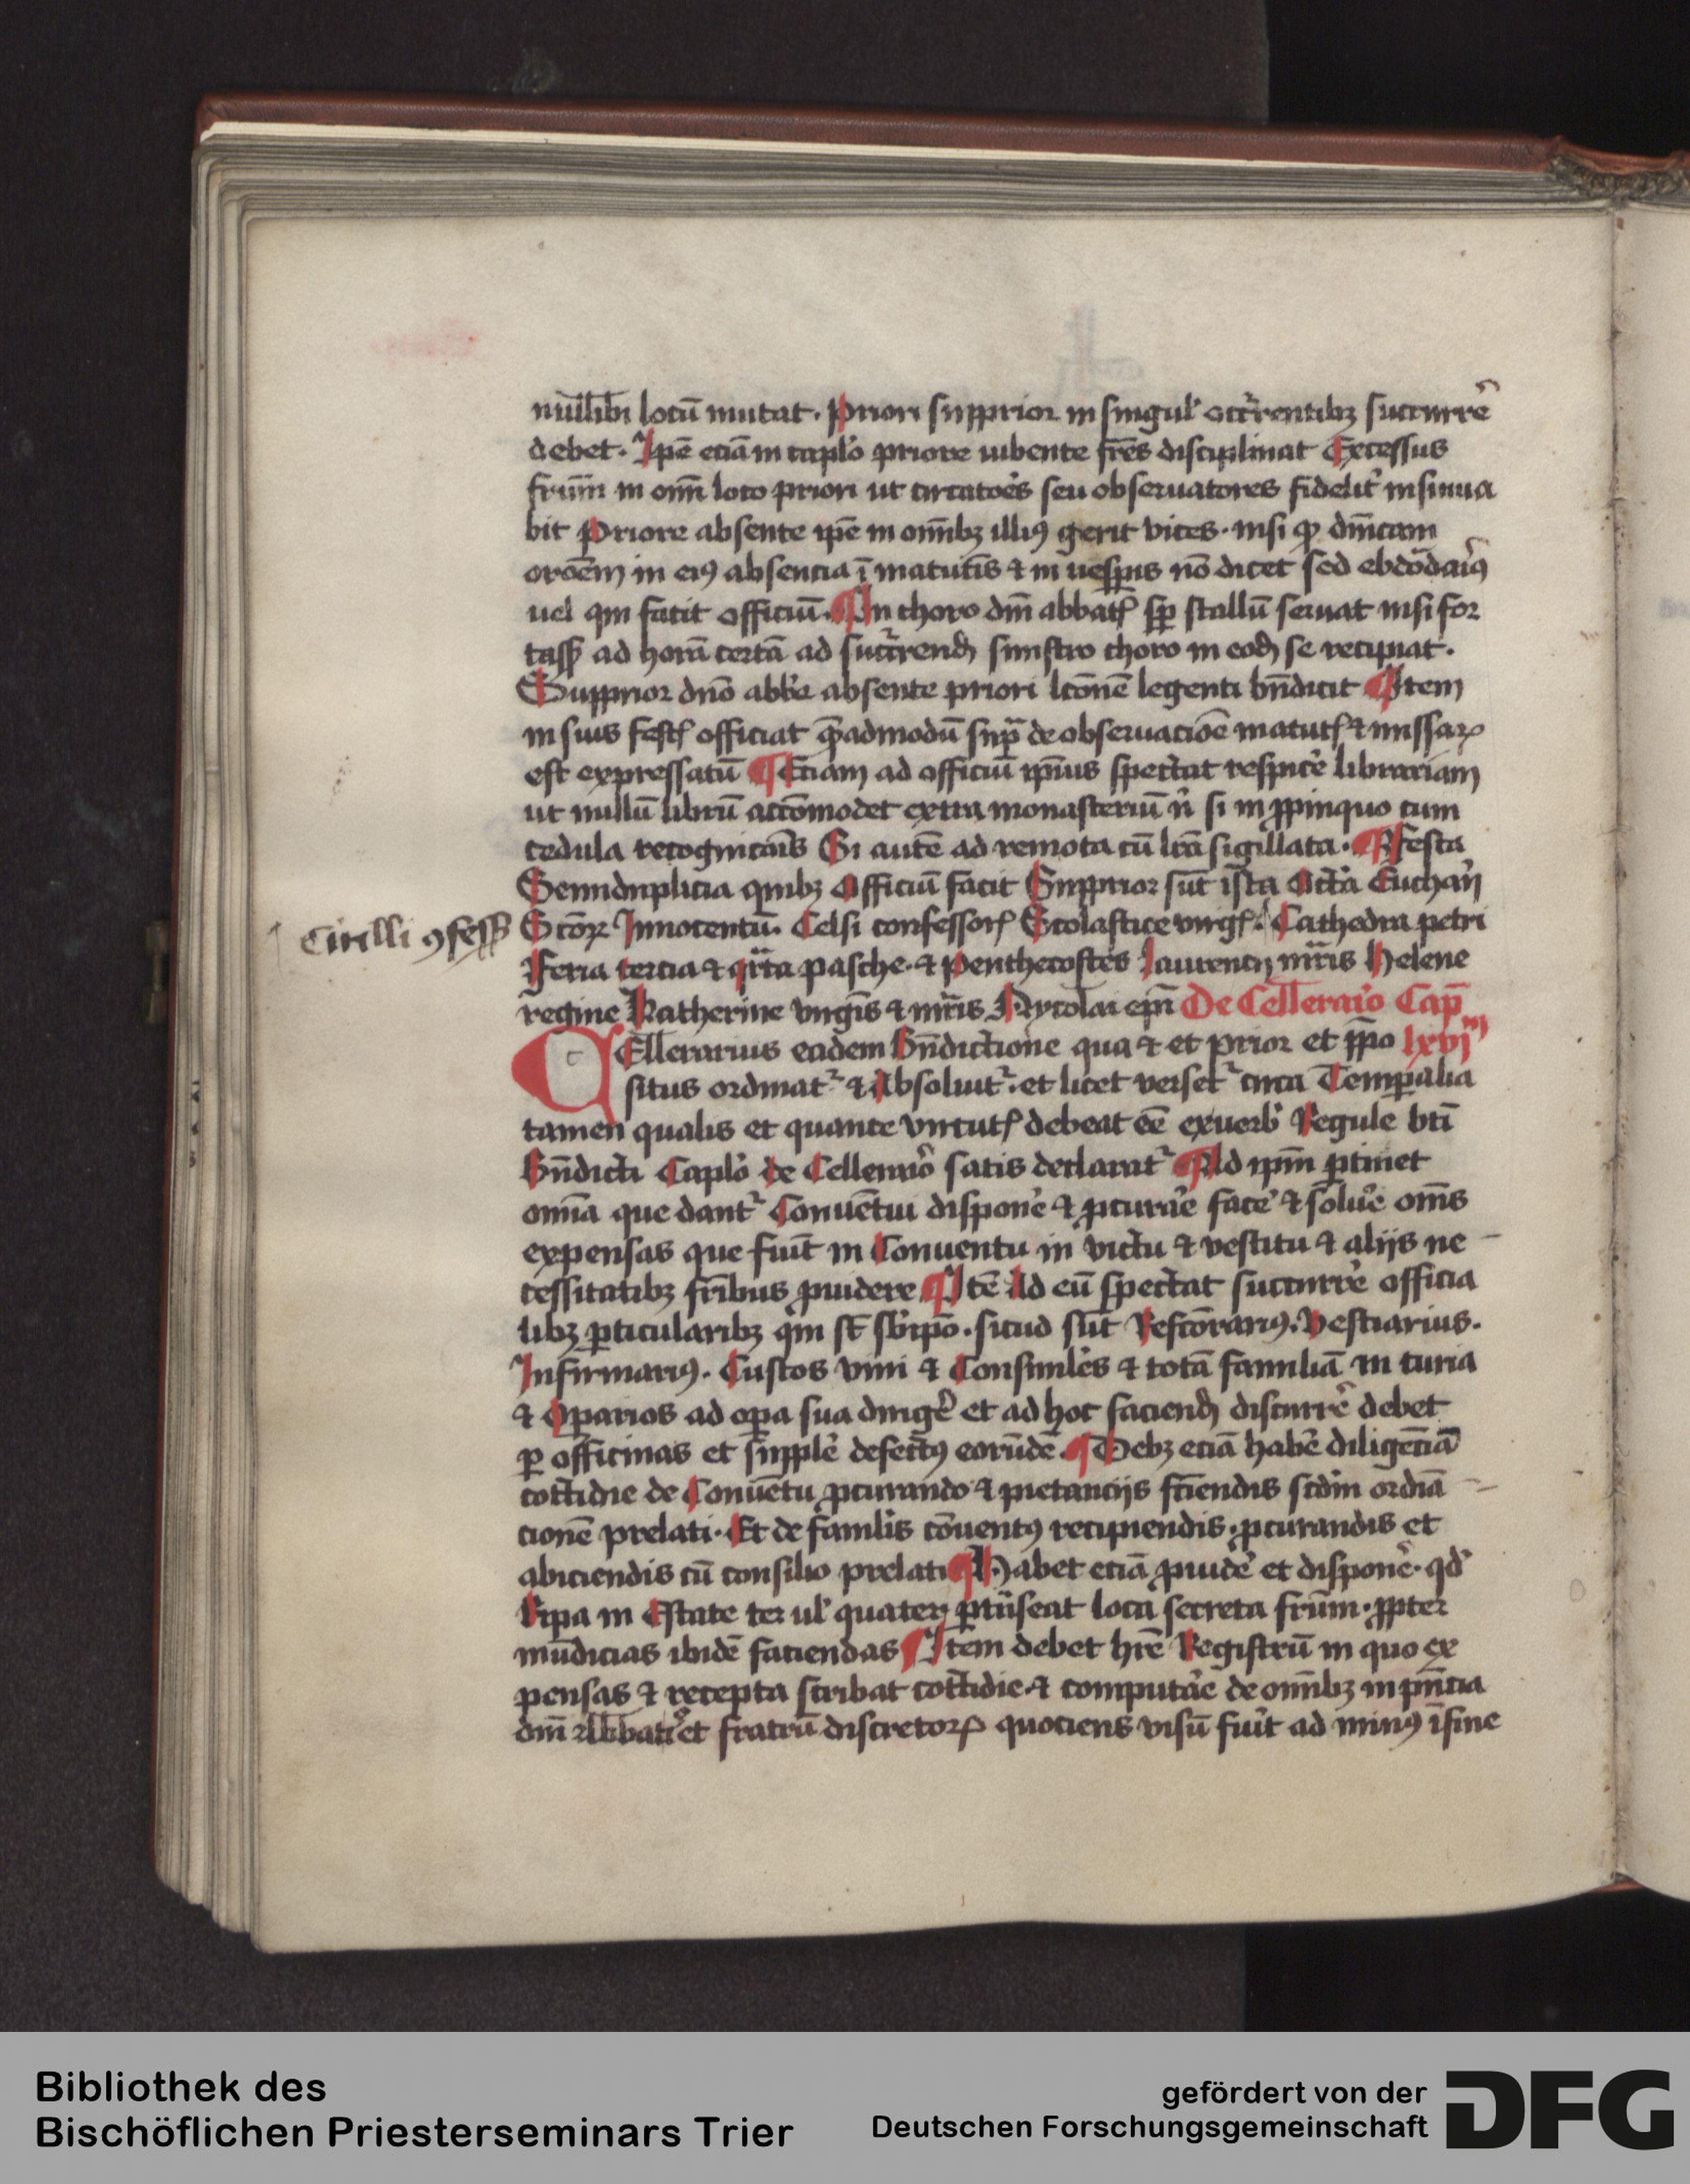 nullibi locū mutat. Priori supprior in singul' occ̄rentibꝫ succurre᷑
debet. Ip̄e eciā in cap̄lo priore iubente fr̄es disciplinat Excessus
fr̄um in om̄i loco priori ut circatoēs seu obseruatores fidelit᷑ insinua
bit Priore absente ip̄e in om̄ibꝫ illiꝰ gerit vices. nisi ꝙ dn̄icam
oroēm in eiꝰ absencia ī matutīs ⁊ in uesꝑis nō dicet sed ebdōdariꝰ
uel qui facit officiū. ¶ In choro dn̄i abbatꝭ sꝑ stallū seruat nisi for
tassꝭ ad horā certā ad succ̄rend̄ sinistro choro in eod̄ se recipiat.
Supprior dn̄o abb̄e absente priori lc̄onē legenti bn̄dicit ¶ Item
in suis festꝭ officiat qͣ̄admodū supͣ de obseruacioē matutꝭ ⁊ missaꝝ
est expressatū ¶ Eciam ad officiū ip̄ius spectat respice᷑ librariam
ut nullū librū accōmodet extra monasteriū n̄ si in ꝓpinquo cum
cedula recognicōis Si autē ad remota cū lr̄a sigillata. ¶ Festa
Semiduplicia quibꝫ Officiū facit Supprior sūt ista Oct̄a Euchar̄ij
Cirilli ꝯfessꝭ
Sc̄oꝝ Innocentū. Celsi confessorꝭ Scolastice virgꝭ. Cathedra petri
Feria tercia ⁊ qͣrta pasche. ⁊ Penthecostes Laurencij mr̄is Helene
regine Katherine virgīs ⁊ mr̄is Nycolai ep̄i De Cellerar̄io Cap̄
Cellerarius eadem Bn̄dictione qua ⁊ et prior et p̄po lxvjᵐ
situs ordinat᷑ ⁊ Absoluit᷑. et licet verset᷑ circa Temꝑalia
tamen qualis et quante virtutꝭ debeat eē ex uerb̄ Regule bt̄i
Bn̄dicti Cap̄lo de Cellerar̄io satis declarat᷑ ¶ Ad ip̄m ꝑtinet
omīa que dant᷑ Conuētui dispone᷑ ⁊ ꝓcurar̄e face᷑ ⁊ solue᷑ om̄s
expensas que fiūt in Conuentu in victu ⁊ vestitu ⁊ alijs ne
cessitatibꝫ fr̄ibus ꝓuidere ¶ Itē Ad eū spectat succurre᷑ officia
libꝫ ꝑticularibꝫ qui sūt sb̄ ip̄o. sicud sūt Refcōrariꝰ. Vestiarius.
Infirmariꝰ. Custos vini ⁊ Consimiles ⁊ totā familiā in curia
⁊ Oꝑarios ad oꝑa sua dirige᷑ et ad hoc faciend̄ discurre᷑ debet
ꝑ officinas et supple᷑ defectꝰ eorūdē. ¶ Debꝫ eciā habe᷑ diligēciā
cottidie de Conuētu ꝓcurando ⁊ pietancijs fc̄iendis scd̄m ordiā
cionē prelati. Et de famil̄is cōuentꝰ recipiendis. ꝓcurandis et
abiciendis cū consilio prelati ¶ Habet eciā ꝓuide᷑ et dispone᷑. qd̄
Ripa in Estate ter ul' quater ꝑtrāseat loca secreta fr̄um. ꝓpter
mūdicias ibidē faciendas ¶ Item debet hr̄e Registrū in quo ex
pensas ⁊ recepta scribat cottidie. ⁊ computar̄e de om̄ibꝫ in pn̄cia
dn̄i Abbatis et fratrū discretorꝝ quociens visū fuīt ad minꝰ ī fine
Bibliothek des
Bischöflichen Priesterseminars Trier
gefördert von der
Deutschen Forschungsgemeinschaft
DFG